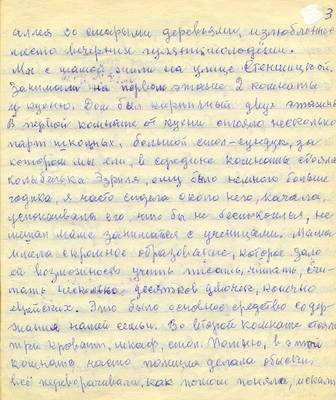 3
аллея со старыми деревьями, излюбленное
место вечерних гуляний молодёжи.
Мы с мамой жили на улице
Занимали на первом этаже 2 комнаты
и кухню. Дом был кирпичный двух этажный
В первой комнате от кухни стояло несколько
парт школьных, большой стол-сундук, за
которым мы ели, в середине комнаты стояла
колыбелька Эзриля, ему было немного больше
годика, я часто сидела около него, качала,
успокаивала его что бы не беспокоился, не
мешал маме заниматься с ученицами. Мама
имела скромное образование, которое дало
ей возможность учить писать, читать, счи-
тать несколько десятков девочек, конечно
еврейских. Это было основное средство содер-
жания нашей семьи. Во второй комнате стояли
три кровати, шкаф, стол. Помню, в этой
комнате часто полиция делала обыски,
всё переворачивали, как потом поняла, искали